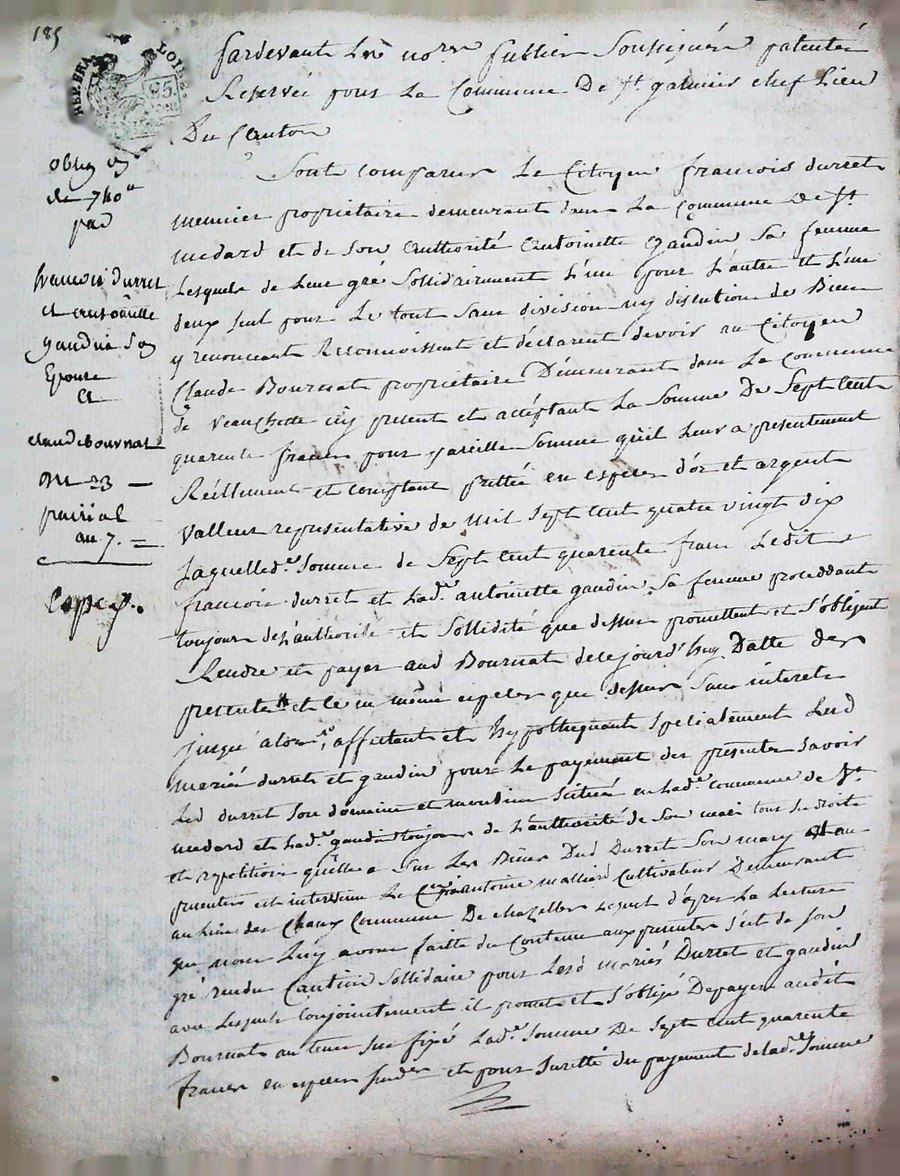 185
REP. FRA LOIRE
25
pardevant Les no.res publics Soussignés patentés
Reservés pour La Commune De St. galmier chef Lieu
Du Canton
Sont comparus Le Citoyen francois durret
meunier propriétaire demeurant dans La Commune De St
medard et de Son Authorité Antoinette Gaudin Sa femme
Lesquels de Leur gré Sollidairement L'un pour L'autre et L'un
deux Seul pour Le tout Sans division ny discution de Biens
y renonceant Reconnoissent et déclarent devoir au Citoyen
Claude Bournat propriétaire Démeurant dans La Commune
de Veauchette icy present et acceptant La Somme De Sept Cent
quarente francs pour pareille Somme qu'il Leur a presentement
Réellement et comptant prettée en especes d'or et argent
valleur representative de Mil Sept Cent quatre vingt dix
Laquelle d.e Somme de Sept Cent quarente francs Ledit
francois durret et Lad.e antoinette gaudin Sa femme proceddant
toujours de L'authorité et Sollidité que dessus promettent et S'obligent
Rendre et payer aud Bournat de ce jourd'huy Datte des
presentes et ce en même especes que dessus Sans interets
jusqu'alors, affectant et hypothequant Specialement Lesd
mariés durret et gaudin pour Le payement des presentes Savoir
Led durret Son domaine et moulin Scitués en Lad.e commune de St
medard et Lad.e gaudin toujours de L'authorité de Son mari tous Ses droits
et repetitions qu'elle a Sur Les Biens Dud Durret Son mary et au
presentes est intervenu Le C.en antoine mathieu Cultivateur Demeurant
au Lieu des Chaux Commune De chazelles Lequel d'après La Lecture
que nous Luy avons faitte du Contenu aux presentes S'est de Son
gré rendu Caution Sollidaire pour Lesd mariés Durret et gaudin
avec Lesquels Conjointement il promet et S'oblige De payer audit
Bournat au terme Sus fixé Lad.e Somme De Sept Cent quarente
francs en especes Susd.es et pour Suretté du payement de Lad.e Somme
oblig.on
de 740
par
francois durret
et antoinette
gaudin Son
Epouse
A
claude bournat
Du 23
prairial
an 7.
copie